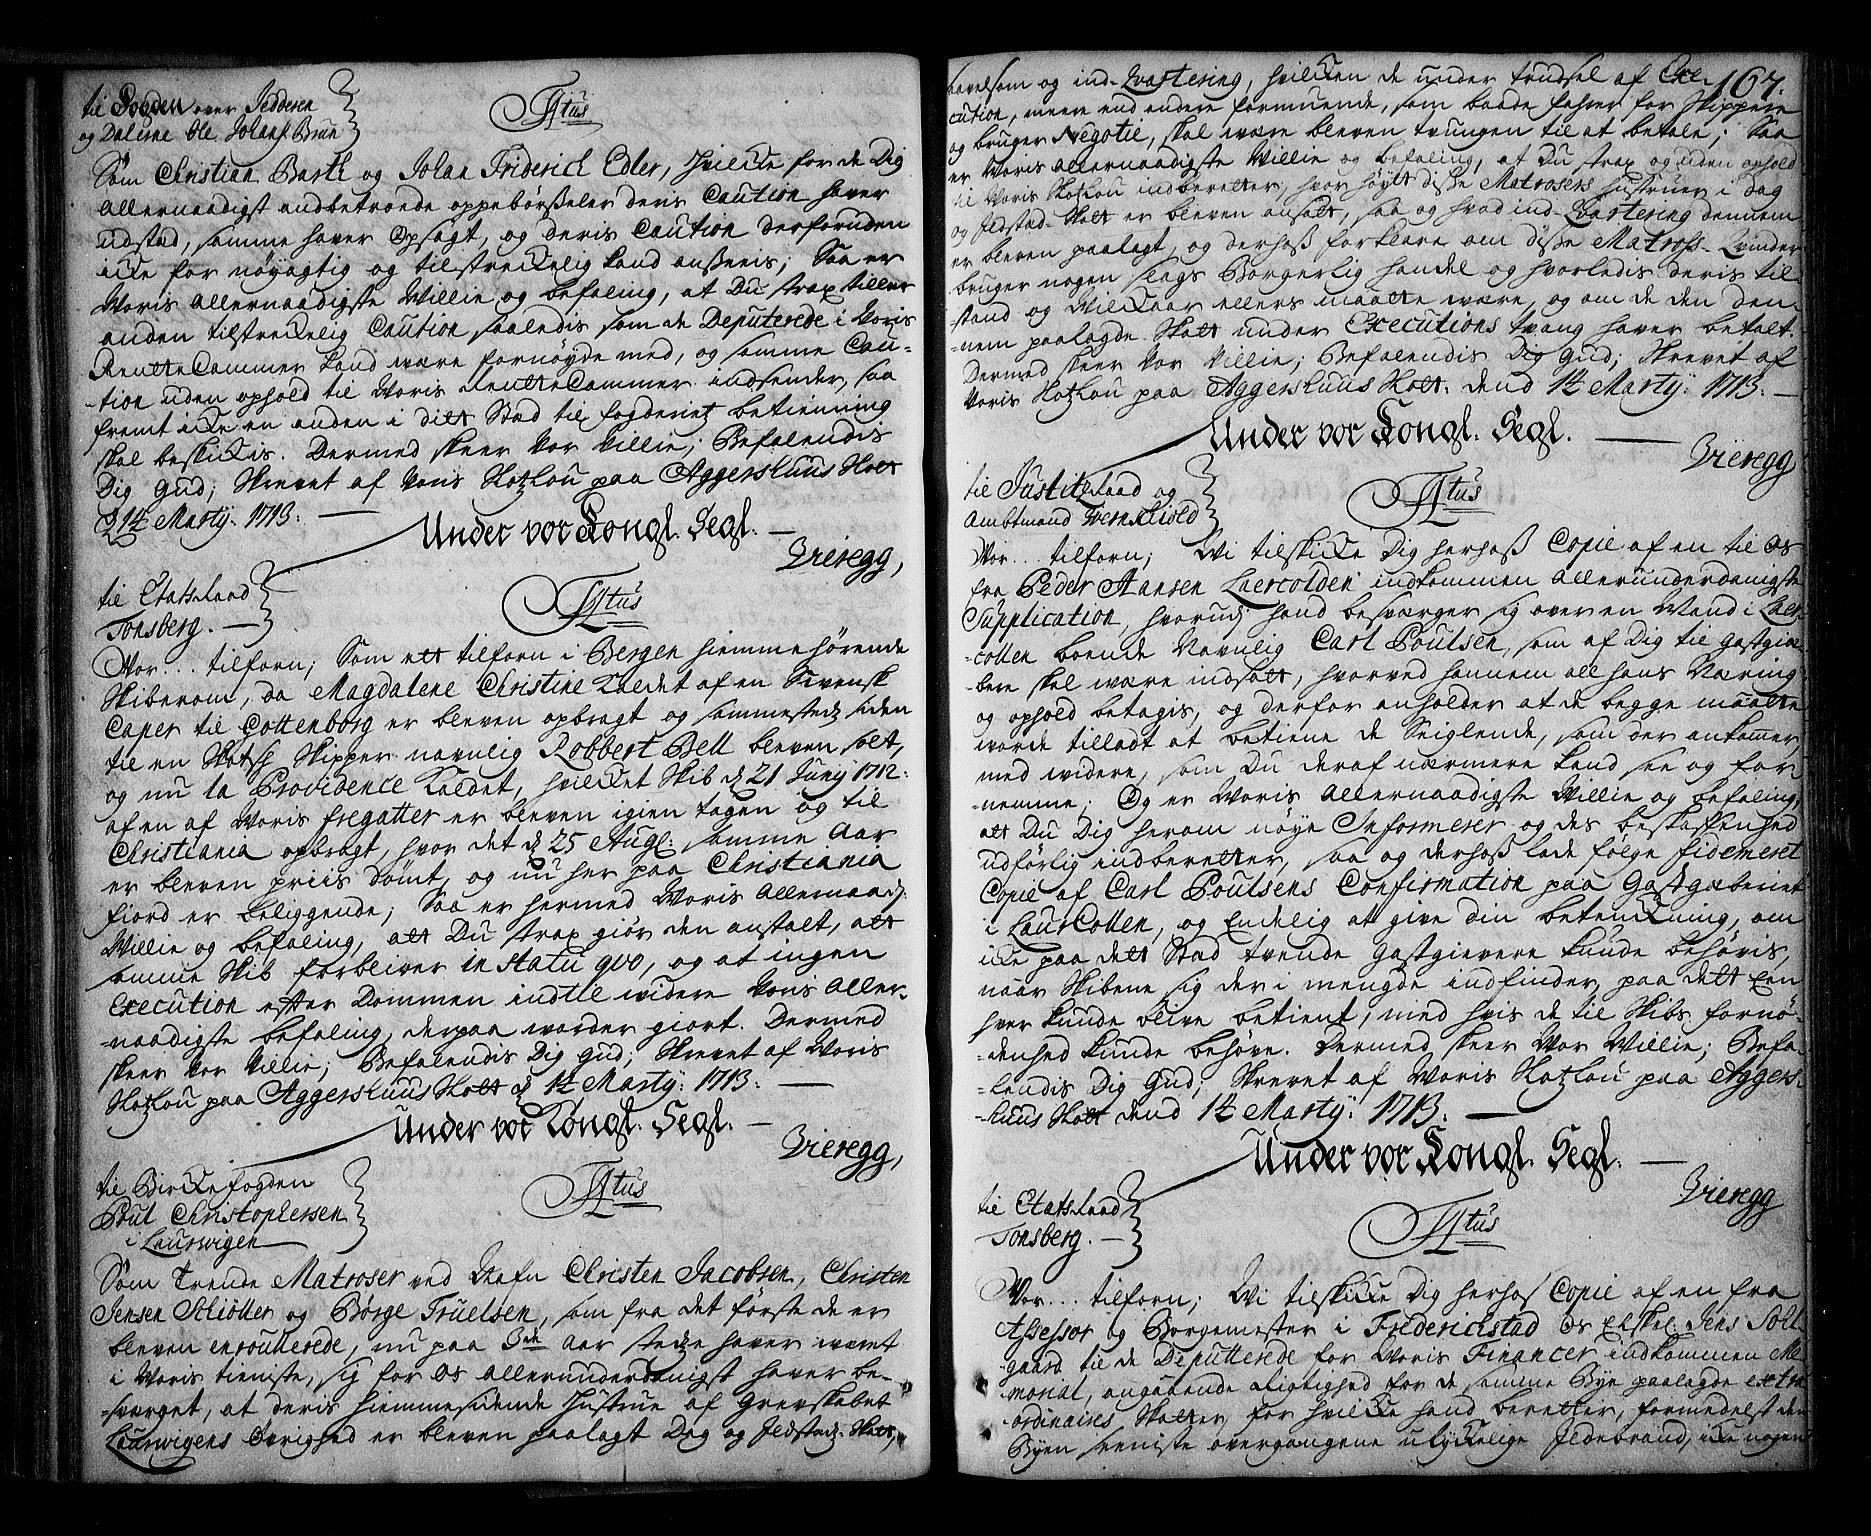 til Fogden over Jedderen
og Dalerne Ole Johans: Brun
Titus
Som Christian Barth og Johan Friderich Edler, hvilke for de Dig
allernaadigst anbetroede oppebørseler deris Caution haver
udstæd, samme haver Opsagt, og deris Caution derforuden
icke for nøyagtig og tilstreckelig kand ansees; Saa er
Voris allernaadigste Villie og befaling, at Du strax stiller
anden tilstreckelig Caution, saaledis som de Deputerede i Voris
RenteCammer kand være fornøyde med, og samme Cau-
-tion uden ophold til Voris RenteCammer indsender, saa
fremt icke en anden i ditt Stæd til fogderiets betienning
skal beskickis. Dermed skeer Vor Villie; Befalendis
Dig Gud; Skrevet af Voris Slotzlou paa Aggershuus Slott
d 14 Martÿ: 1713. —
Under vor Kongl. Segl. —
Vieregg,
til Etatsraad
Tonsberg. —
Titus
Vor... tilforn; Som ett tilforn i Bergen hiemmehørende
Skiberom, da Magdalene Christine kaldet af en Svensk
Caper til Gottenborg er bleven opbragt og sammestedz siden
til en Skotsk Skipper navnlig Robbert Bell bleven solt,
og nu la Providence kaldet, hvilcket Skib d 21 Junij 1712:
af en af Voris fregatter er bleven igien tagen og til
Christiania opbragt, hvor det d 25 Augl: samme Aar
er bleven priis dømt, og nu her paa Christiania
fiord er beliggende; Saa er hermed Voris Allernaad:
Villie og befaling, att Du strax giør den anstalt, att
samme Skib forbliver in statu qvo, og at ingen
Execution efter Dommen indtil widere Voris Aller-
-naadigste befaling derpaa worder giort. Dermed
skeer Vor Villie; Befalendis Dig Gud; Skrevet af Voris
Slotzlou paa Aggershuus Slott d 14 Martÿ: 1713: —
Under vor Kongl. Segl. —
Vieregg,
til Birckefogden
Poul Christophersen
i Laurwigen
Titus
Som Trende Matroser ved Nafn Christen Jacobsen, Christen
Jensen Schiøtter og Børge Truelsen, som fra det første de er
bleven enroullerede, nu paa 3de Aar stedze haver wæret
i Voris tieniste, sig for Os allerunderdanigst haver be-
-swærget, at deris hiemmesidende Hustrue af Grevskabet
Laurwigens Øvrighed er bleven paalagt Dag og Ildstædz Skatt,
167.
bevelsom og ind-Qvartering, hvilcken de under trudsel af Exe-
cution, meere end andere formuende, som baade fahrer for Skippere
og bruger Negotie, skal wære bleven tvungen til at betale; Saa
er Voris allernaadigste Villie og befaling, at Du strax og uden ophold
til Voris Slotzlou indberetter, hvor høyt disse Matrosers hustruer i Dag
og Ildstæd-Skatt er bleven ansatt, saa og hvad ind-Qvartering dennem
er bleven paalagt, og derhoß forklare om disse Matroß-Qvinder
bruger nogen slags Borgerlig handel og hvorledis deris til-
stand og Vilckaar ellers maatte wære, og om de den den-
-nem paalagde Skatt under Executions tvang haver betalt.
Dermed skeer Vor Villie; Befalendis Dig Gud; Skrevet af
Voris Slotzlou paa Aggershuus Slott. dend 14 Martÿ: 1713. —
Under vor Kongl. Segl. —
Vieregg
til Justitzraad og
Ambtmand Wernschiold
Titus
Vor... tilforn; Wi tilskicke Dig herhoß Copie af en til Os
fra Peder Hansen Laercolden indkommen allerunderdanigste
Supplication, hvorudj hand beswærger sig over en Mand i Laer-
-collen boende Navnlig Carl Poulsen, som af Dig til Gastgie-
-bere skal wære indsatt, hvorved hannem all hans Næring
og ophold betagis, og derfor anholder at de begge maatte
worde tilladt at betiene de Seiglende, som der ankommer,
med widere, som Du deraf nærmere kand see og for-
-nemme; Og er Voris Allernaadigste Villie og befaling,
att Du Dig herom nøye Informerer og des beskaffenhed
udførlig indberetter, saa og derhoß lade følge fidemeret
Copie af Carl Poulsens Confirmation paa Gastgæberiet
i LaurCollen, og Endelig at give din betenckning, om
icke paa dett Stæd tvende Gastgievere kunde behøvis,
naar Skibene sig der i mengde indfinder, paa dett Een
hver kunde blive betient, med hvis de til Skibs fornø-
-denhed kunde behøve. Dermed skeer Vor Villie; Befa-
-lendis Dig Gud; Skrevet af Voris Slotzlou paa Aggers-
-huus Slott dend 14 Martÿ: 1713. —
Under vor Kongl. Segl. —
Vieregg
til Etatsraad
Tonsberg. —
Titus
Vor... tilforn; Wi tilskicke Dig herhos Copie af en fra
Assessor og Borgemester i Frederichstad Os Elskel: Jens Solt-
-gaard til de Deputterede for Voris Financer indkommen Me-
-morial, angaaende Rigtighed for de samme Bye paalagde extra-
-ordinaires Skatter, for hvilcke hand beretter, formedelst den
Byen seeniste overgangene ulyckelige Ildebrand, icke nogen